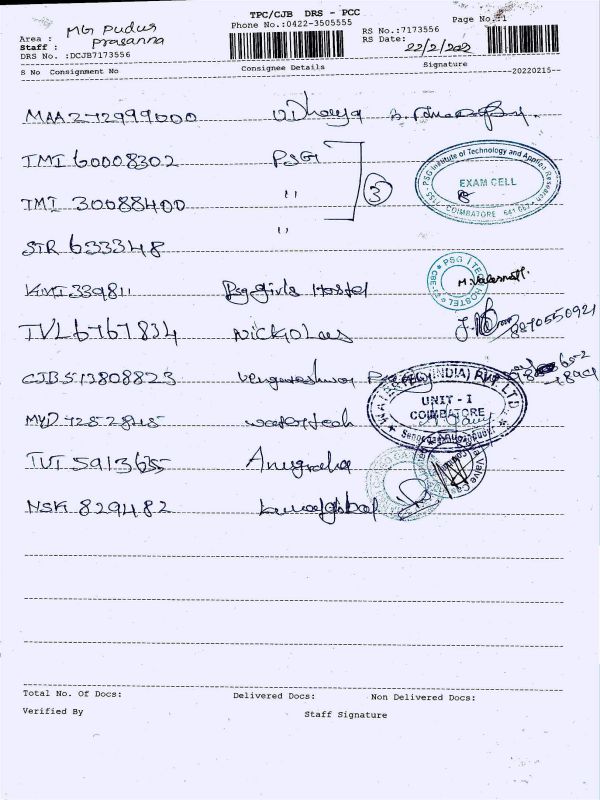 TPC/CJB DRS - PCC
Phone No.:0422-3505555
Page No.:1
Area : MG Pudur
RS No.:7173556
Staff : Prasanna
RS Date: 22/2/202
DRS No. :DCJB7173556
S No Consignment No Consignee Details Signature
--20220215--
MAA 272999000
TMI 60008302 PSG
TMI 30088400 " 3
STR 633348 "
KMI 339811 Psg girls Hostel
TVL6767834 Nickolas 8870550921
CJB513808823
MYD 72852845 watertech
TUT 5913655 Anugraha
NSK 829482
PSG Institute of Technology and Applied Research
EXAM CELL
COIMBATORE 641 062
PSG iTECH HOSTEL
WATERTEC (INDIA) PVT. LTD.
UNIT - I
COIMBATORE
Total No. Of Docs: Delivered Docs: Non Delivered Docs:
Verified By Staff Signature